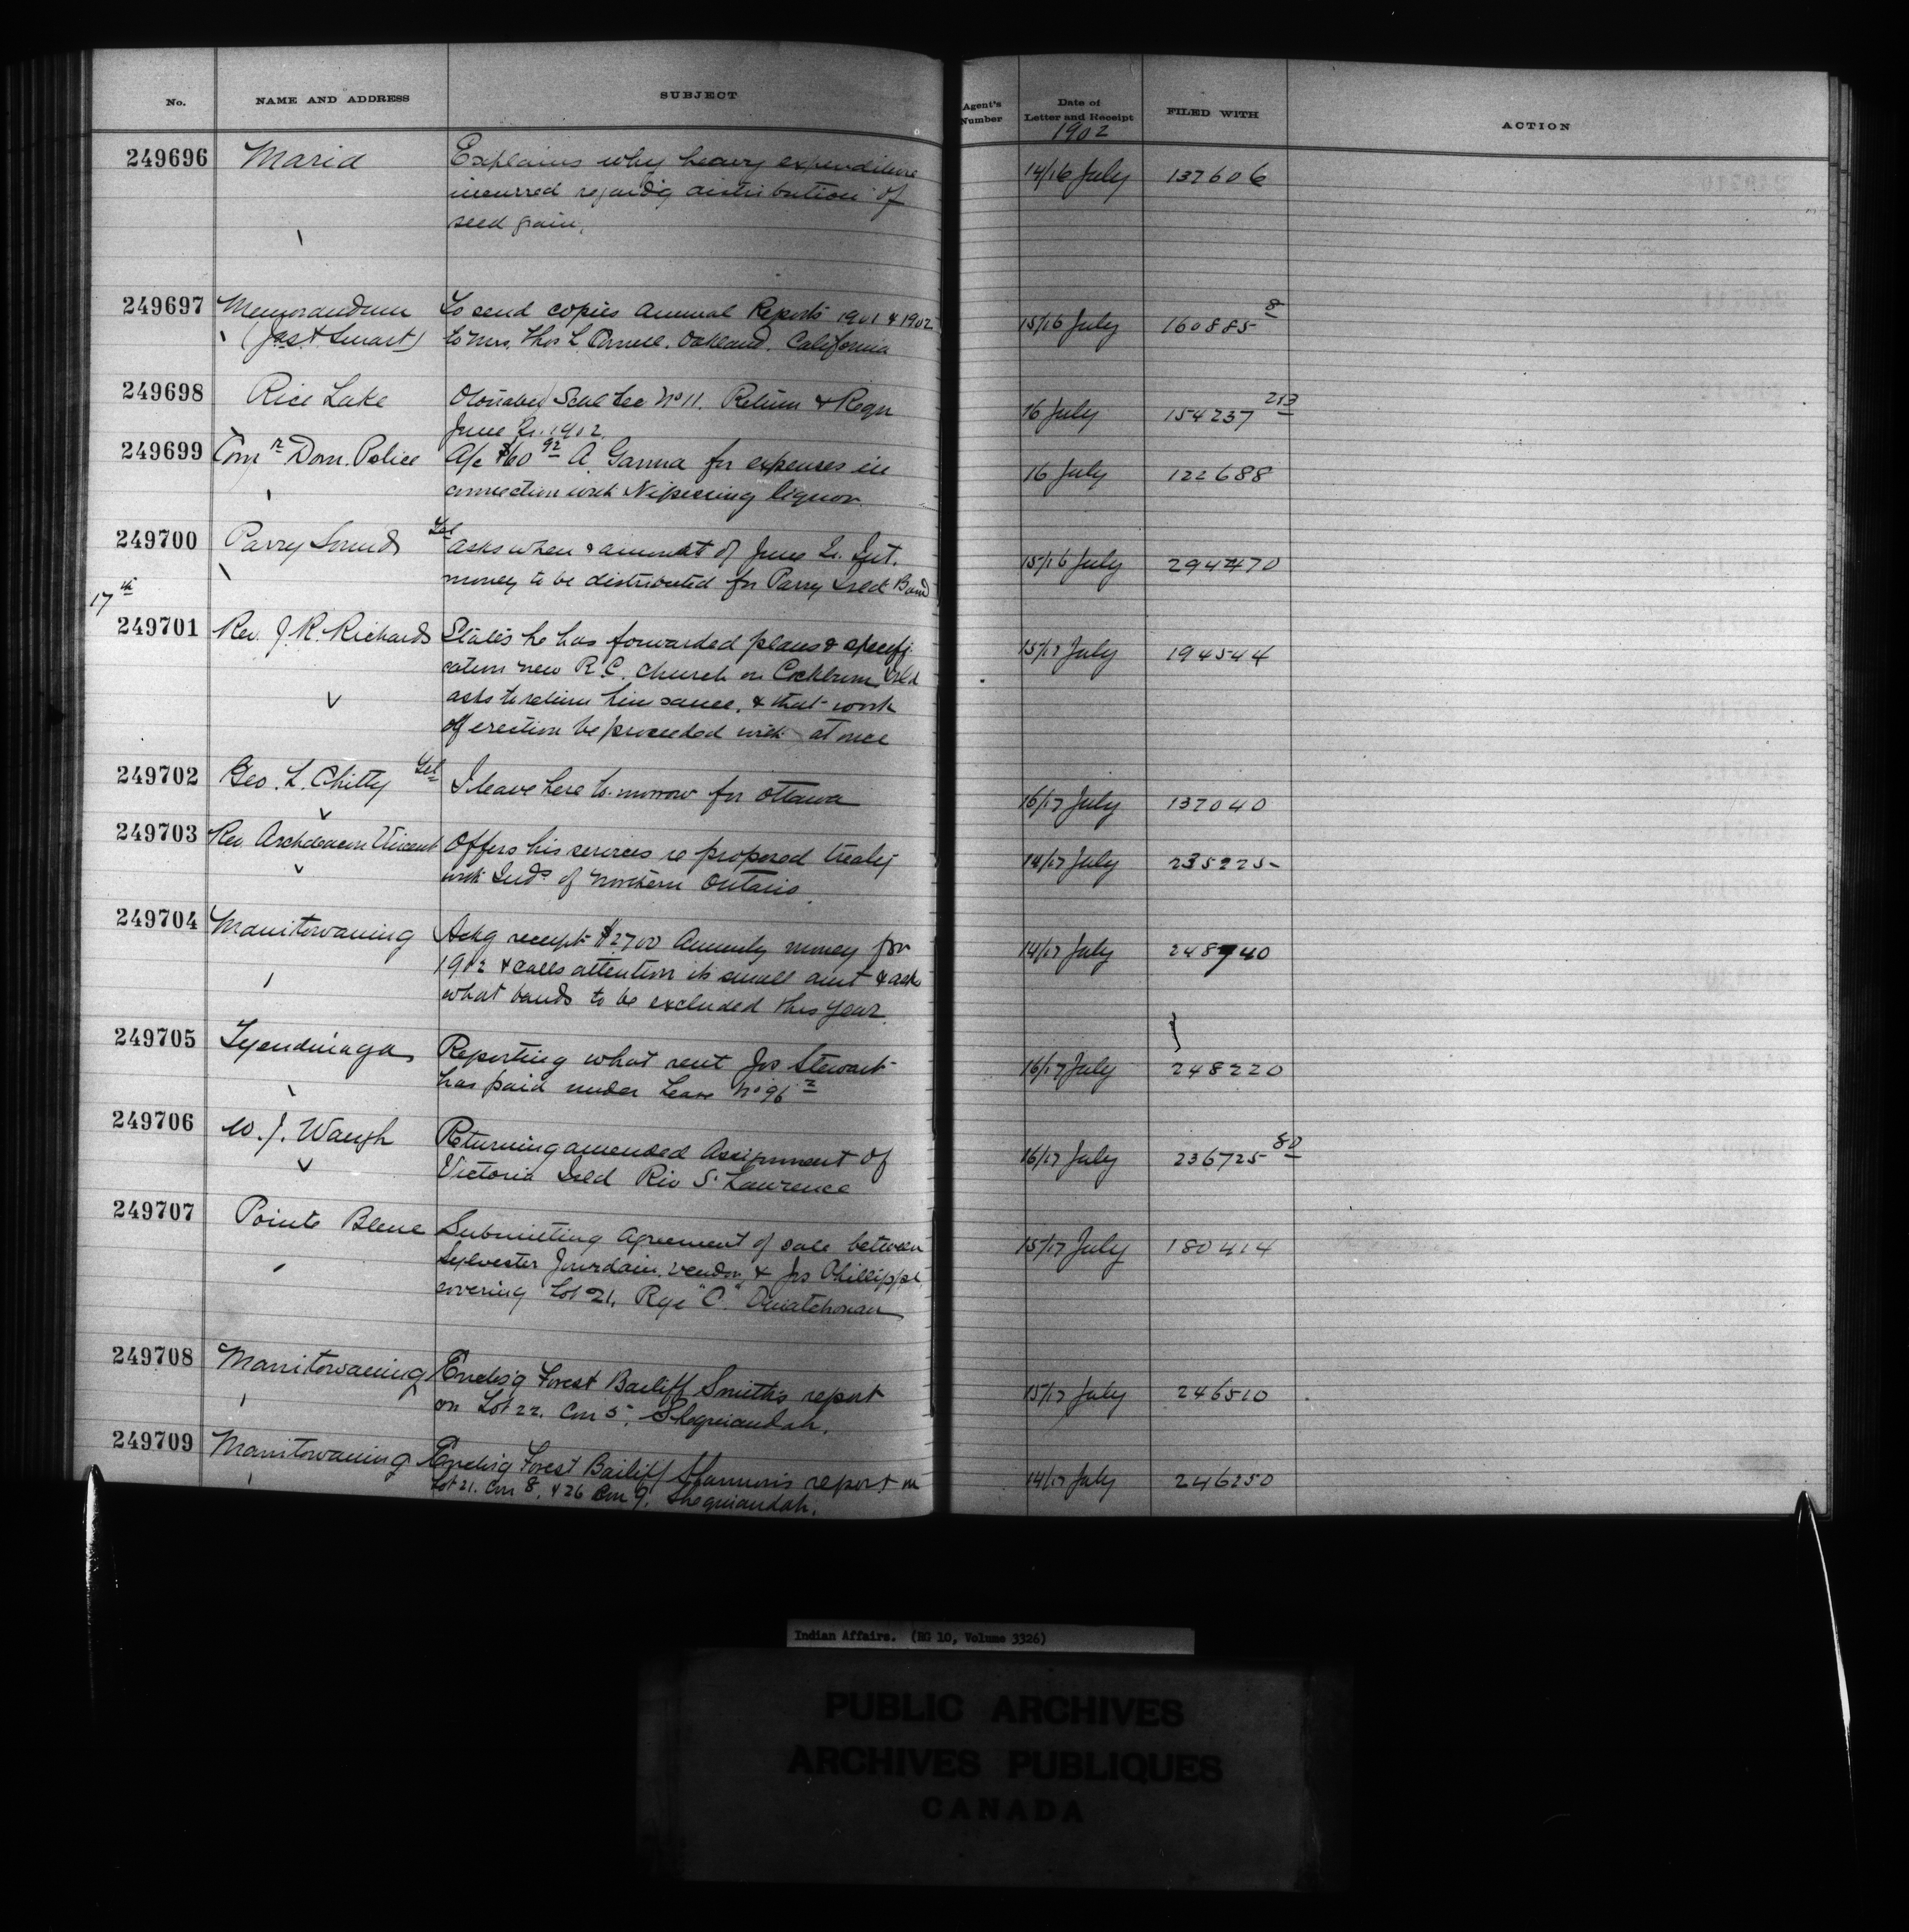 No. NAME AND ADDRESS SUBJECT Agent's Number Date of Letter and Receipt FILED WITH ACTION
1902
249696 Maria Explains why heavy expenditure 14/16 July 137606
incurred regard'g distribution of
seed grain.
249697 Memorandum To send copies Annual Reports 1901 & 1902 15/16 July 160885 8
(Jas A Smart) to Mrs. Thos L. Oakland. California
249698 Rice Lake Otonabee Scul Sec No 11. Return & Requ 16 July 154237 213
June Qr. 1902.
249699 Comr Dom. Police A/c $60 92 A. Ganna for expenses in 16 July 122688
connection with Nipissing liquor
249700 Parry Sound Tel asks when & amount of June Qr. Int. 15/16 July 294470
money to be distributed for Parry Isld Band
17th
249701 Rev. J. R. Richards States he has forwarded plans & specifi- 15/17 July 194544
cation new R.C. Church on Cockburn Isld
asks to return him same, & that work
of erection be proceeded with at once
249702 Geo. L. Chitty Tel I leave here to-morrow for Ottawa 16/17 July 137040
249703 Rev Archdeacon Vincent Offers his services re proposed treaty 14/17 July 235225
with Inds of Northern Ontario.
249704 Manitowaning Ackg receipt $2700 Annuity money for 14/17 July 248940
1902 & calls attention its small amt & asks
what bands to be excluded this year.
249705 Tyendinaga Reporting what rent Jos Stewart 16/17 July 248220
has paid under Lease No 96
249706 W. J. Waugh Returning amended Assignment of 16/17 July 236725 80
Victoria Isld Riv St Lawrence
249707 Pointe Bleue Submitting Agreement of sale between 15/17 July 180414
Sylvester Jourdain, vendor, & Jos Phillippe
covering Lot 21, Rge "C." Ouiatchouan
249708 Manitowaning Enclos'g Forest Bailiff Smith's report 15/17 July 246510
on Lot 22, Con 5, Sheguiandah.
249709 Manitowaning Enclos'g Forest Bailiff report on 14/17 July 246250
Lot 21. Con 8, & 26 Con 9, Sheguiandah.
Indian Affairs. (RG 10, Volume 3326)
PUBLIC ARCHIVES
ARCHIVES PUBLIQUES
CANADA